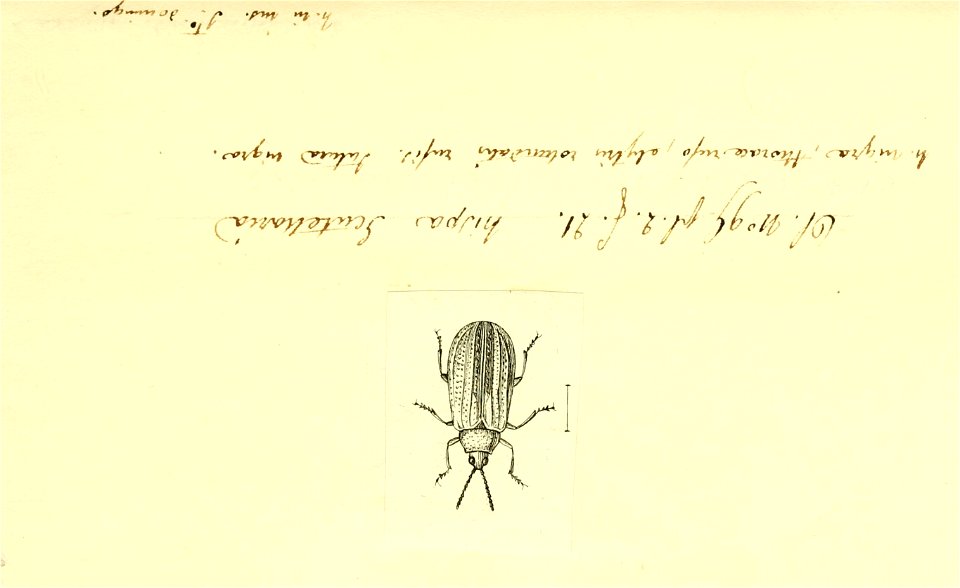 Ol. N° 95 pl. 2. f. 21. hispa Scutellaris
h. nigra, thorace rufo, elytris rotundatis rufis. Sutura nigra.
h. in ins. Sto domingo.